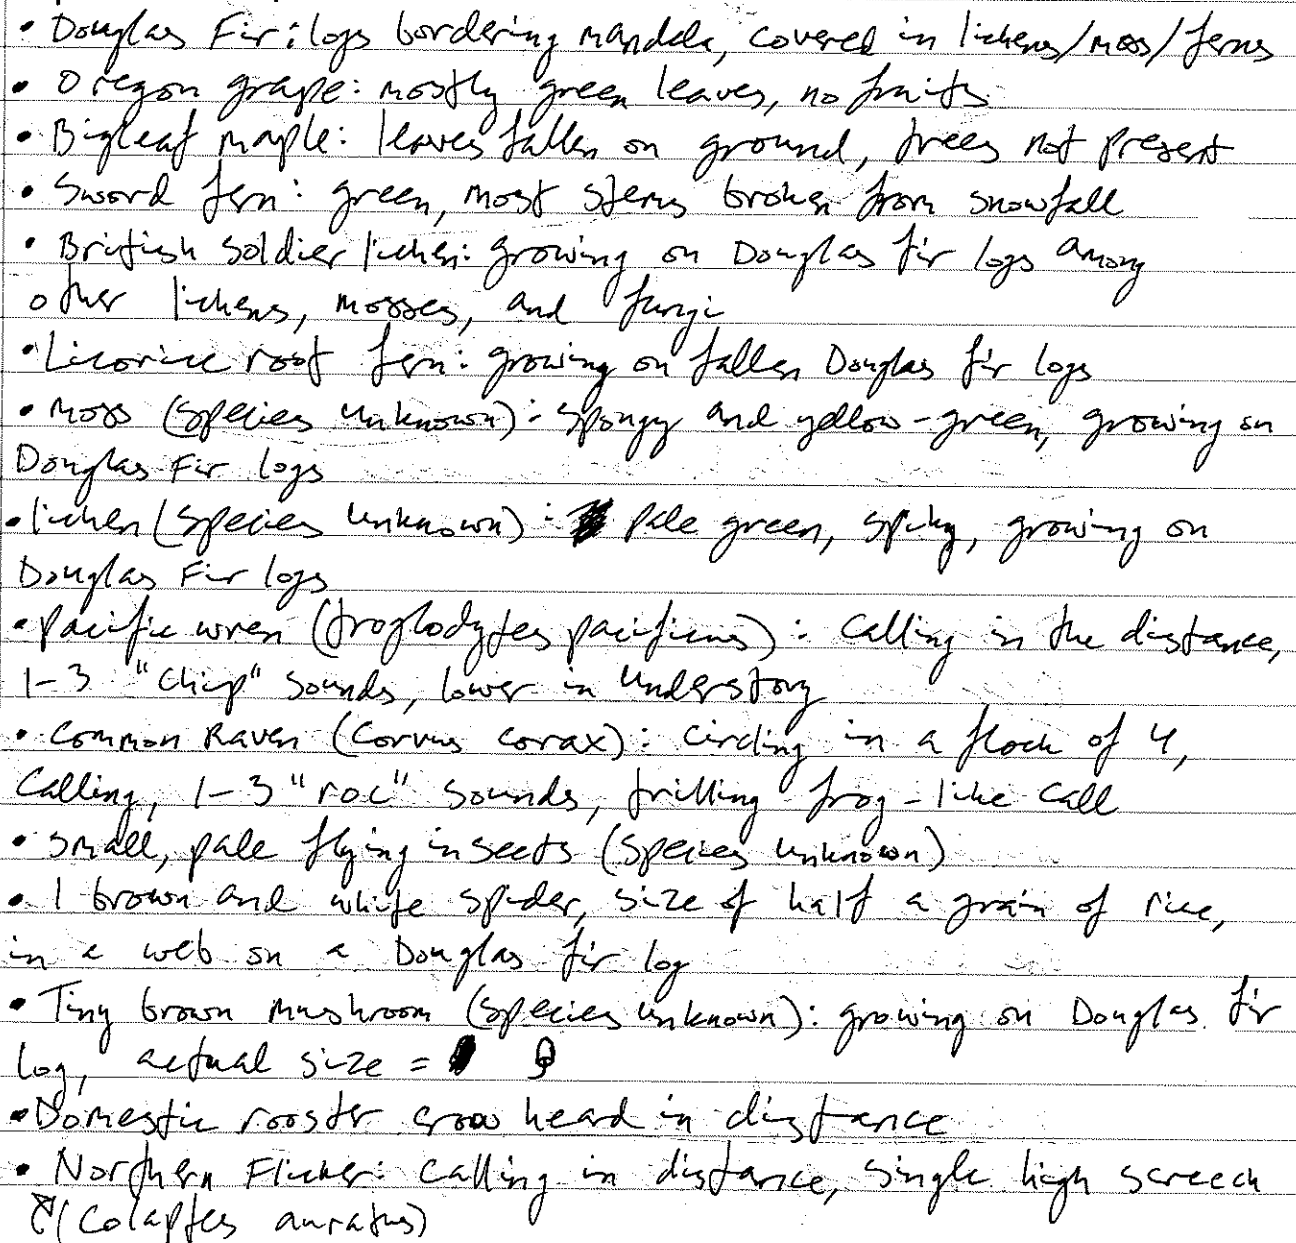 • Douglas Fir: logs bordering mandala, covered in lichens/moss/ferns
• Oregon grape: mostly green leaves, no fruits
• Bigleaf maple: leaves fallen on ground, trees not present
• Sword fern: green, most stems broken from snowfall
• British soldier lichen: growing on Douglas fir logs among
other lichens, mosses, and fungi
• Licorice root fern: growing on fallen Douglas fir logs
• Moss (species unknown): spongy and yellow-green, growing on
Douglas Fir logs
• lichen (species unknown): pale green, spiky, growing on
Douglas Fir logs
• Pacific wren (troglodytes pacificus): Calling in the distance,
1-3 "chip" sounds, lower in understory
• Common Raven (Corvus corax): Circling in a flock of 4,
Calling, 1-3 "roc" sounds, trilling frog-like call
• Small, pale flying insects (species unknown)
• 1 brown and white spider, size of half a grain of rice,
in a web on a Douglas fir log
• Tiny brown mushroom (species unknown): growing on Douglas fir
log, actual size =
• Domestic rooster crow heard in distance
• Northern Flicker: Calling in distance, single high screech
(Colaptes auratus)